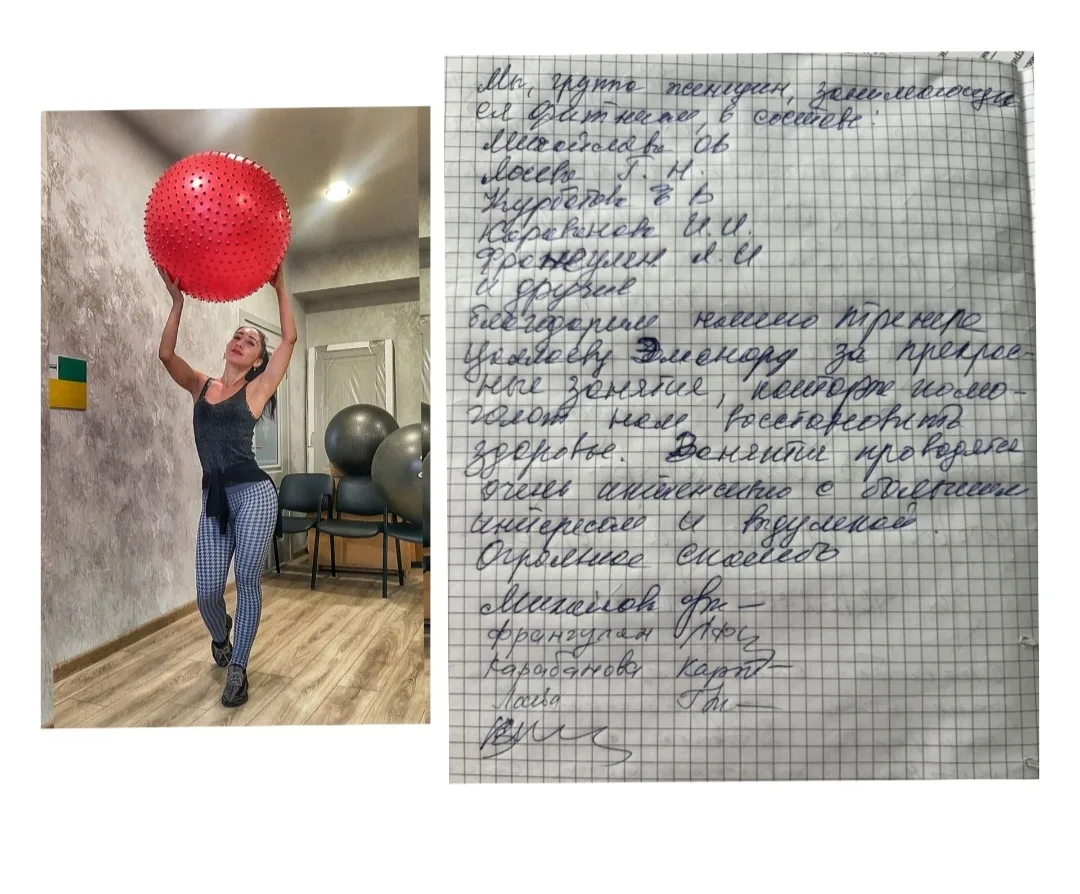 Мы, группа женщин, занимающих
ся фитнесом, в составе:
Михайлова ОВ
Лосева Г. Н.
Курбатова Е В
Карабанова И. И.
Франгулян Л. И
и другие
благодарим нашего тренера
Элеонору за прекрас-
ные занятия, которые помо-
гают нам восстановить
здоровье. Занятия проводятся
очень интенсивно с большим
интересом и выдумкой.
Огромное спасибо
Михайлова
Франгулян
Карабанова